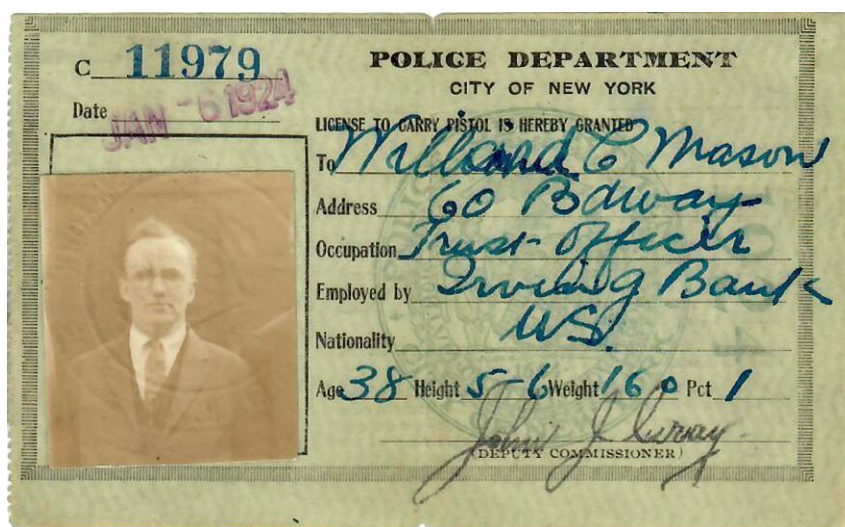 C 11979
Date JAN -6 1924
POLICE DEPARTMENT
CITY OF NEW YORK
LICENSE TO CARRY PISTOL IS HEREBY GRANTED
To Willard C Mason
Address 60 Bdway
Occupation Trust Officer
Employed by Irving Bank
Nationality US.
Age 38 Height 5-6 Weight 160 Pct 1
John J
(DEPUTY COMMISSIONER)